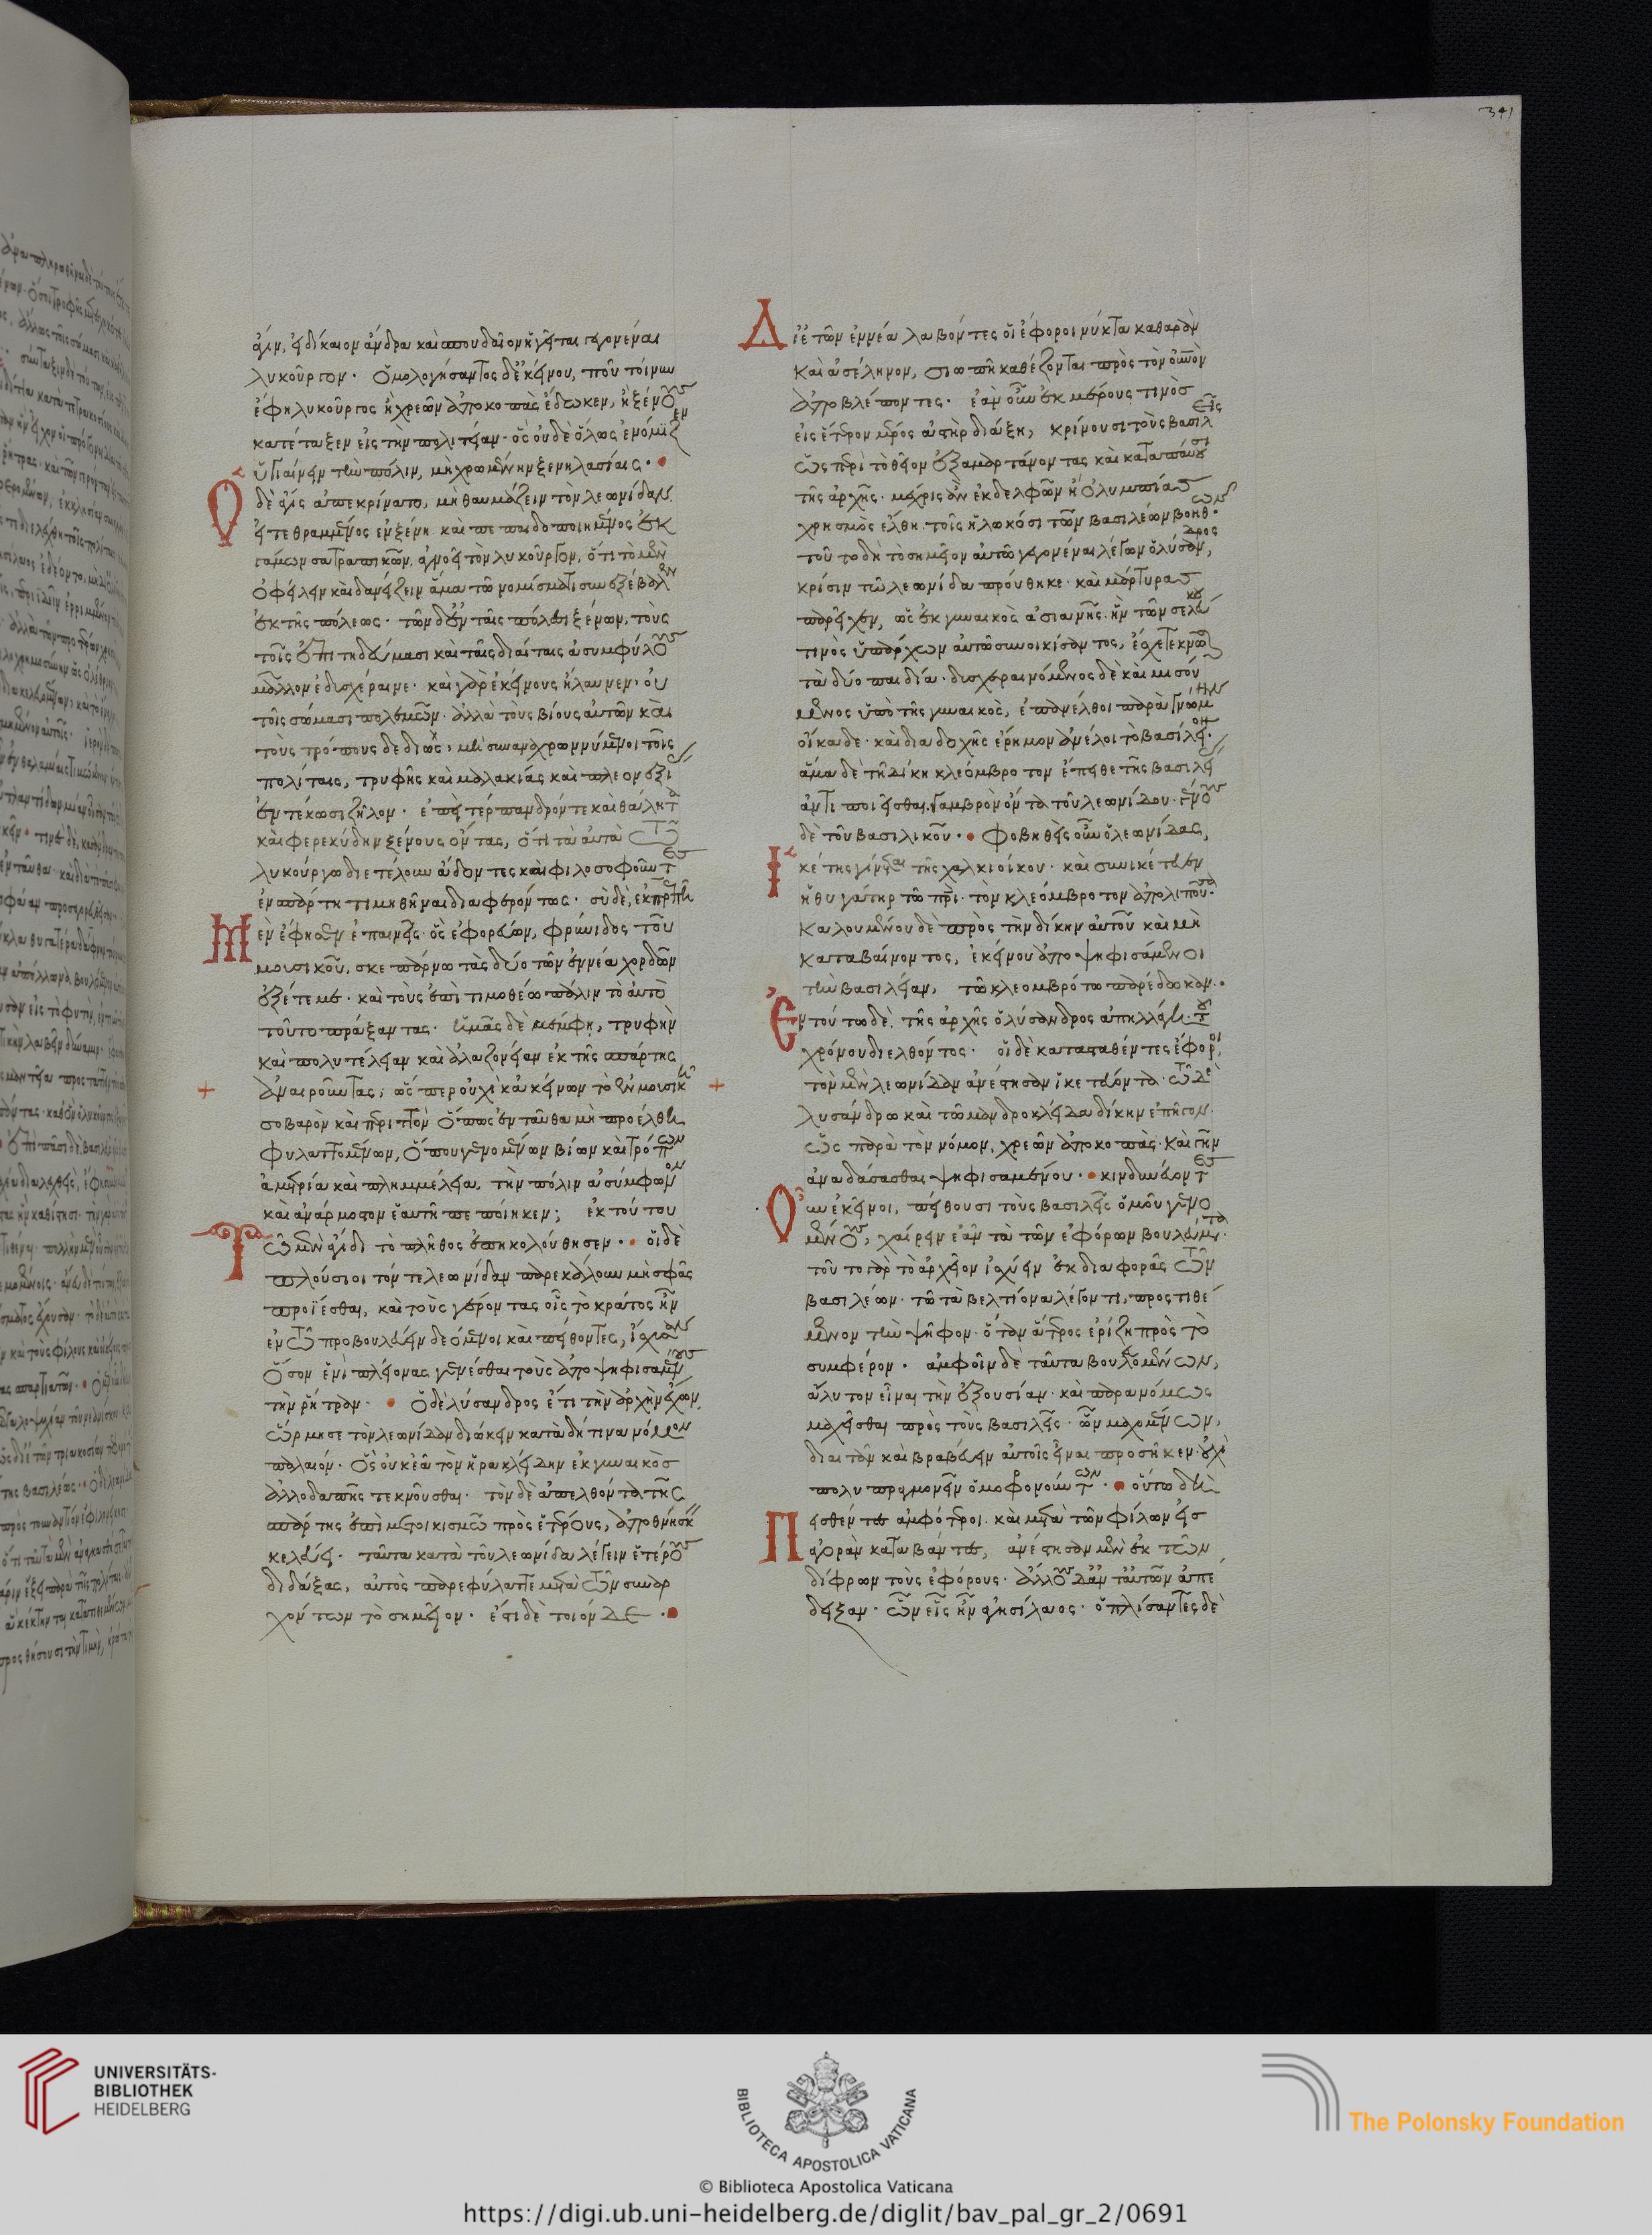 ἆγιν, εἰ δίκαιον ἄνδρα καὶ σπουδαῖον ἡγεῖται γεγονέναι
λυκοῦργον. ὁμολογήσαντος δὲ ἐκείνου, ποῦ τοίνυν
ἔφη λυκοῦργος ἢ χρεῶν ἀποκοπὰς ἔδωκεν, ἢ ξένους
κατέταξεν εἰς τὴν πολιτείαν· ὃς οὐδὲ ὅλως ἐνόμιζεν
ὑγιαίνειν τὴν πόλιν, μὴ χρωμένην ξενηλασίαις·
Ὁ δὲ ἆγις ἀπεκρίνατο, μὴ θαυμάζειν τὸν λεωνίδαν,
εἰ τεθραμμένος ἐν ξένη καὶ πεπαιδοποιημένος ἐκ
γάμων σατραπικῶν, ἀγνοεῖ τὸν λυκοῦργον, ὅτι τὸ μὲν
ὀφείλειν καὶ δανείζειν ἅμα τῶ νομίσματι συνεξέβαλεν
ἐκ τῆς πόλεως· τῶν δὲ ἐν ταῖς πόλεσι ξένων, τοὺς
τοῖς ἐπιτηδεύμασι καὶ ταῖς διαίταις ἀσυμφύλους
μᾶλλον ἐδυσχέραινε· καὶ γὰρ ἐκείνους ἤλαυνεν· οὐ
τοῖς σώμασι πολεμῶν· ἀλλὰ τοὺς βίους αὐτῶν καὶ
τοὺς τρόπους δεδιὼς, μὴ συναναχρωννύμενοι τοῖς
πολίταις, τρυφῆς καὶ μαλακίας καὶ πλεονεξίας
ἐντέκωσι ζῆλον· ἐπεὶ τέρπανδρόν τε καὶ θάλητα
καὶ φερεκύδην ξένους ὄντας, ὅτι τὰ αὐτὰ τῶ
λυκούργω διετέλουν ἄδοντες καὶ φιλοσοφοῦντες
ἐν σπάρτη τιμηθῆναι διαφερόντως· σὺ δὲ, ἐκπρέπη
Μὲν ἔφη οὖν ἐπαινεῖς· ὃς ἐφορεύων, φρύνιδος τοῦ
μουσικοῦ, σκεπάρνω τὰς δύο τῶν ἐννέα χορδῶν
ἐξέτεμε· καὶ τοὺς ἐπὶ τιμοθέω πάλιν τὸ αὐτὸ
τοῦτο πράξαντας· ἡμᾶς δὲ μέμφη, τρυφὴν
καὶ πολυτέλειαν καὶ ἀλαζονείαν ἐκ τῆς σπάρτης
ἀναιροῦντας; ὥσπερ οὐχὶ κἀκείνων τὸ ἐν μουσικῆ
σοβαρὸν καὶ περιττὸν ὅπως ἐνταῦθα μὴ προέλθη
φυλαττομένων, ὅπου γενομένων βίων καὶ τρόπων
ἀμετρία καὶ πλημμέλεια, τὴν πόλιν ἀσύμφωνον
καὶ ἀνάρμοστον ἑαυτῆ πεποίηκεν; ἐκ τούτου
Τῶ μὲν ἄγιδι τὸ πλῆθος ἐπηκολούθησεν· οἱ δὲ
πλούσιοι τόν τε λεωνίδαν παρεκάλουν μὴ σφᾶς
προΐεσθαι, καὶ τοὺς γέροντας οἷς τὸ κράτος ἦν
ἐν τῶ προβουλεύειν δεόμενοι καὶ πείθοντες, ἴσχυσαν
ὅσον ἑνὶ πλείονας γενέσθαι τοὺς ἀποψηφισαμένους
τὴν ῥήτραν· Ὁ δὲ λύσανδρος ἔτι τὴν ἀρχὴν ἔχων,
ὥρμησε τὸν λεωνίδαν διώκειν κατὰ δή τινα νόμον
παλαιόν. ὃς οὐκ ἐᾷ τὸν ἡρακλείδην ἐκ γυναικὸς
ἀλλοδαπῆς τεκνοῦσθαι· τὸν δὲ ἀπελθόντα τῆς
σπάρτης ἐπὶ μετοικισμῶ πρὸς ἑτέρους, ἀποθνήσκειν
κελεύει· ταῦτα κατὰ τοῦ λεωνίδα λέγειν ἑτέρους
διδάξας, αὐτὸς παρεφύλαττε μετὰ τῶν συναρ
χόντων τὸ σημεῖον. ἔστι δὲ τοιόνδε·
341
Δι' ἐτῶν ἐννέα λαβόντες οἱ ἔφοροι νύκτα καθαρὰν
καὶ ἀσέληνον, σιωπῆ καθέζονται πρὸς τὸν οὐρανὸν
ἀποβλέποντες· ἐὰν οὖν ἐκ μέρους τινὸς
εἰς ἕτερον μέρος ἀστὴρ διάξη, κρίνουσι τοὺς βασιλεῖς
ὡς περὶ τὸ θεῖον ἐξαμαρτάνοντας, καὶ καταπαύουσι
τῆς ἀρχῆς· μέχρις ἂν ἐκ δελφῶν ἢ ὀλυμπίας
χρησμὸς ἔλθη τοῖς ἡλωκόσι τῶν βασιλέων βοηθῶν·
τοῦτο δὴ τὸ σημεῖον αὐτῶ γεγονέναι λέγων ὁ λύσανδρος,
κρίσιν τῶ λεωνίδα προὔθηκε· καὶ μάρτυρας
παρεῖχεν, ὡς ἐκ γυναικὸς ἀσιανῆς, ἣν τῶν σελεύκου
τινὸς ὑπάρχων αὐτῶ συνοικίσαντος, ἔσχε τεκνῶσαι
τὰ δύο παιδία· δυσχεραινόμενος δὲ καὶ μισού
μενος ὑπὸ τῆς γυναικὸς, ἐπανέλθοι παρὰ γνώμην
οἴκαδε· καὶ διαδοχῆς ἔρημον ἀνέλοιτο βασίλειον·
ἅμα δὲ τῆ δίκη κλεόμβροτον ἔπειθε τῆς βασιλείας
ἀντιποιεῖσθαι, γαμβρὸν ὄντα τοῦ λεωνίδου· γένους
δὲ τοῦ βασιλικοῦ· φοβηθεὶς οὖν ὁ λεωνίδας,
Ἱκέτης γίνεται τῆς χαλκιοίκου· καὶ συνικέτευεν
ἡ θυγάτηρ τῶ πατρὶ· τὸν κλεόμβροτον ἀπολιποῦσα·
καλουμένου δὲ πρὸς τὴν δίκην αὐτοῦ καὶ μὴ
καταβαίνοντος, ἐκείνου ἀποψηφισάμενοι
τὴν βασιλείαν, τῶ κλεομβρότω παρέδωκαν·
Ἐν τούτω δὲ τῆς ἀρχῆς ὁ λύσανδρος ἀπηλλάγη τοῦ
χρόνου διελθόντος· οἱ δὲ κατασταθέντες ἔφοροι,
τὸν μὲν λεωνίδαν ἀνέστησαν ἱκετεύοντα· τῶ δὲ
λυσάνδρω καὶ τῶ μανδροκλείδα δίκην ἐπῆγον·
ὡς παρὰ τὸν νόμον, χρεῶν ἀποκοπὰς καὶ γῆν
ἀναδάσασθαι ψηφισαμένου· κινδυνεύοντες
Οὖν ἐκεῖνοι, πείθουσι τοὺς βασιλεῖς ὁμοῦ γενο
μένους, χαίρειν ἐᾶν τὰ τῶν ἐφόρων βουλεύματα·
τοῦτο γὰρ τὸ ἀρχεῖον ἰσχύειν ἐκ διαφορᾶς τῶν
βασιλέων· τῶ τὰ βελτίονα λέγοντι, προστιθέ
μενον τὴν ψῆφον· ὅταν ἅτερος ἐρίζη πρὸς τὸ
συμφέρον· ἀμφοῖν δὲ ταῦτα βουλευομένων,
ἄλυτον εἶναι τὴν ἐξουσίαν· καὶ παρανόμως
μαχεῖσθαι πρὸς τοὺς βασιλεῖς· ὧν μαχομένων,
διαιτᾶν καὶ βραβεύειν αὐτοῖς εἶναι προσῆκεν· οὐχὶ
πολυπραγμονεῖν ὁμοφρονούντων· οὕτω δὴ
Πεισθέντες ἀμφότεροι, καὶ μετὰ τῶν φίλων εἰς
ἀγορὰν καταβάντες, ἀνέστησαν μὲν ἐκ τῶν
δίφρων τοὺς ἐφόρους· ἄλλους δὲ ἀντ' αὐτῶν ἀπέ
δειξαν· ὧν εἷς ἦν ἀγησίλαος· ὁπλίσαντες δὲ
UNIVERSITÄTS-
BIBLIOTHEK
HEIDELBERG
BIBLIOTECA APOSTOLICA VATICANA
© Biblioteca Apostolica Vaticana
The Polonsky Foundation
https://digi.ub.uni-heidelberg.de/diglit/bav_pal_gr_2/0691